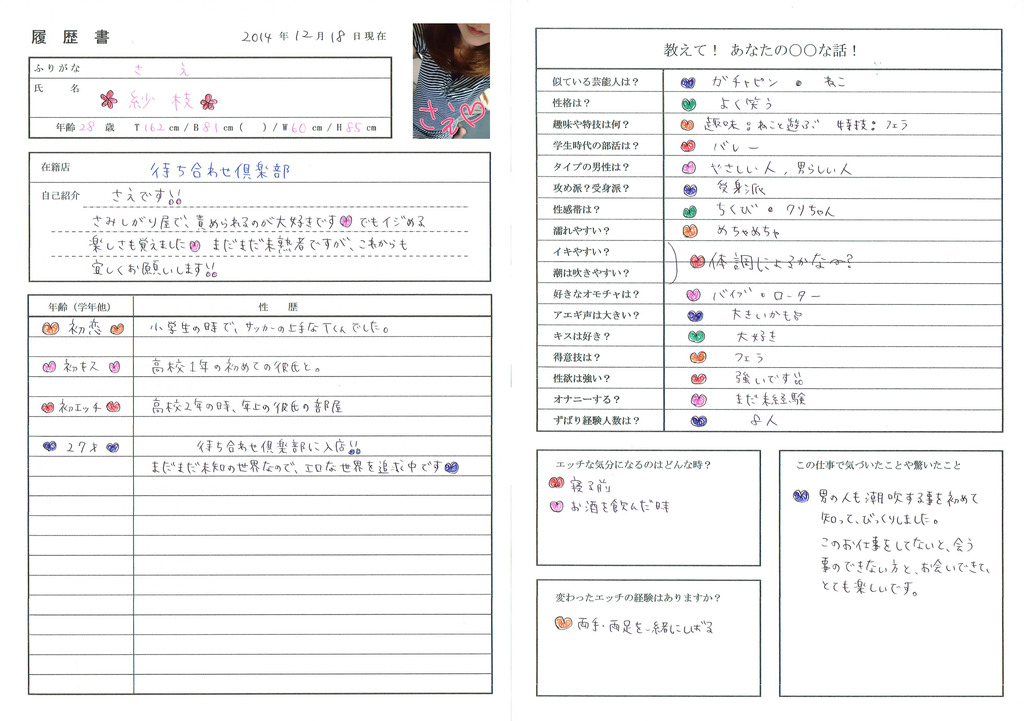 履歴書
2014年12月18日現在
ふりがな さえ
氏名 紗枝
年齢28歳 T162cm/B81cm( )/W60cm/H85cm
さえ
在籍店 待ち合わせ倶楽部
自己紹介 さえです!!
さみしがり屋で、責められるのが大好きです でもイジめる
楽しさも覚えました まだまだ未熟者ですが、これからも
宜しくお願いします!!
年齢(学年他) 性歴
初恋 小学生の時で、サッカーの上手なTくんでした。
初キス 高校1年の初めての彼氏と。
初エッチ 高校2年の時、年上の彼氏の部屋
27才 待ち合わせ倶楽部に入店!!
まだまだ未知の世界なので、エロな世界を追求中です
教えて! あなたの○○な話!
似ている芸能人は? ガチャピン・ねこ
性格は? よく笑う
趣味や特技は何? 趣味:ねこと遊ぶ 特技:フェラ
学生時代の部活は? バレー
タイプの男性は? やさしい人,男らしい人
攻め派?受身派? 受身派
性感帯は? ちくび・クリちゃん
濡れやすい? めちゃめちゃ
イキやすい?
体調によるかな〜?
潮は吹きやすい?
好きなオモチャは? バイブ・ローター
アエギ声は大きい? 大きいかも
キスは好き? 大好き
得意技は? フェラ
性欲は強い? 強いです!!
オナニーする? まだ未経験
ずばり経験人数は? 8人
エッチな気分になるのはどんな時?
寝る前
お酒を飲んだ時
変わったエッチの経験はありますか?
両手・両足を一緒にしばる
この仕事で気づいたことや驚いたこと
男の人も潮吹する事を初めて
知って、びっくりしました。
このお仕事をしてないと、会う
事のできない方と、お会いできて、
とても楽しいです。